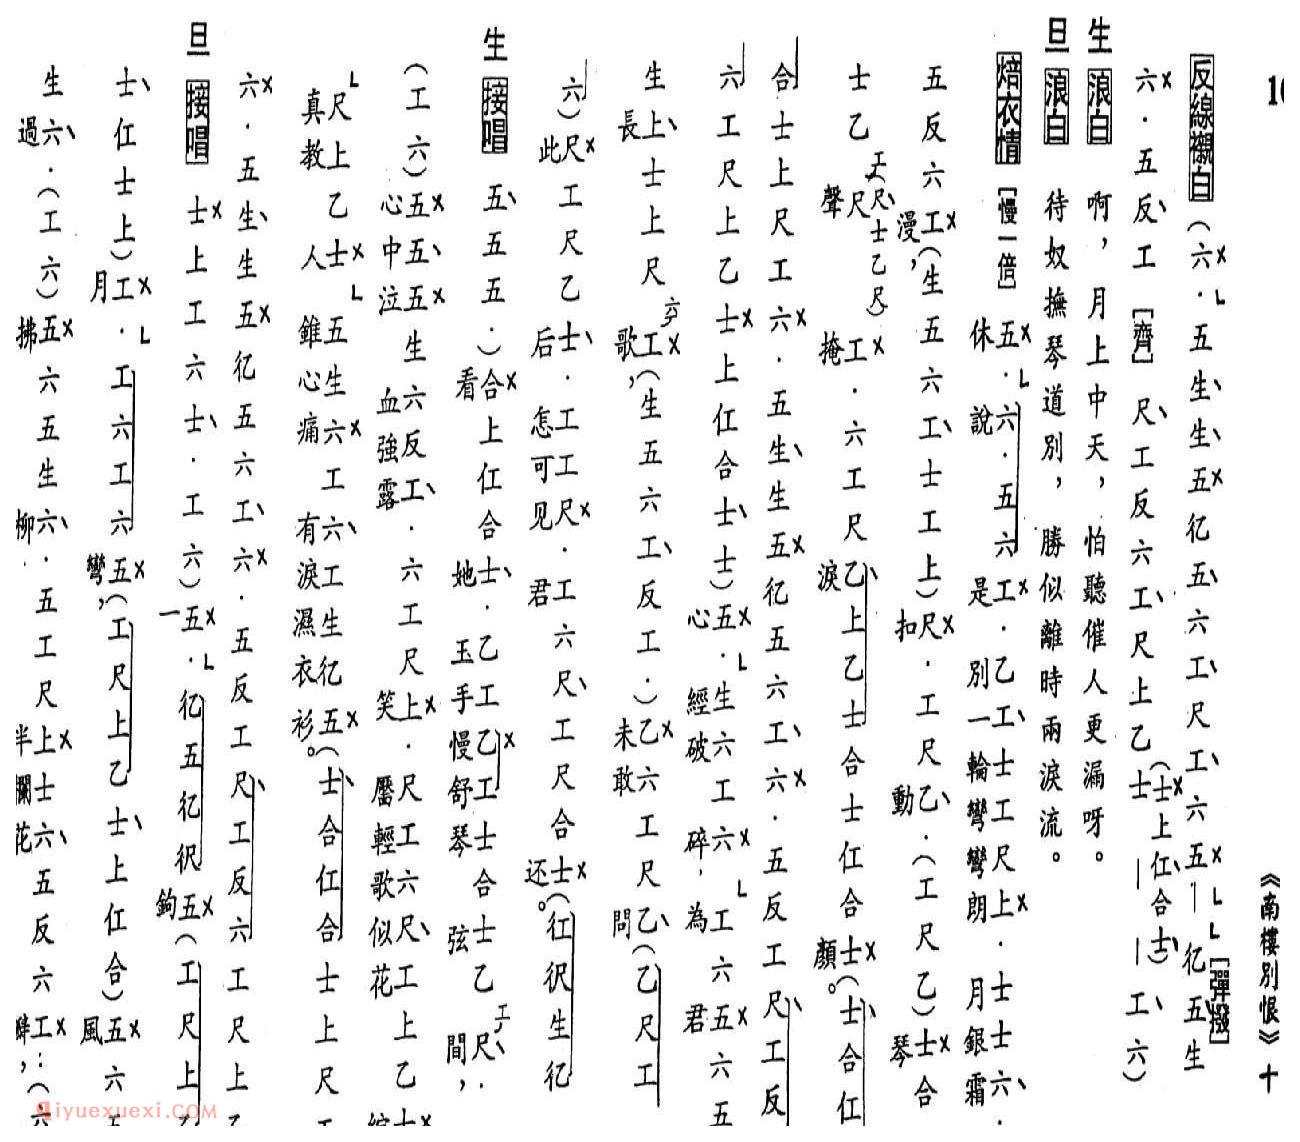 10
《南樓別恨》十
反線襯白（六．五生生五彳乙五六工尺工六五—彳乙五生
[彈撥]
六．五反工［齊］尺工反六工尺上乙士（士上仁合士）——工六）
生 浪白 啊，月上中天，怕聽催人更漏呀。
旦 浪白 待奴撫琴道別，勝似離時兩淚流。
焙衣情［慢一倍］五．六．五六工．乙工士工尺上．士士六．
休說是別一輪彎彎朗月銀霜
五反六工（生五六工士工上）尺．工尺乙．（工尺乙）士合
漫，扣動琴
士乙尺工．六工尺乙上乙士合士仁合士（士合仁
工（尺士乙尺）
聲掩淚顏。
合士上尺工六．五生生五彳乙五六工六．五反工尺工反
六工尺上乙士上仁合士士）五．生六工六工六五六五
心經破碎，為君
生上士上尺工（生五六工反工．）乙六工尺乙（乙尺工
長歌，未敢問
六）尺工尺乙士．工工尺．工六尺工尺合士（仜伬生彳乙
此后怎可見君还。
生 接唱 五五五．）合上仁合士．乙工乙工士合士乙尺．
看她玉手慢舒琴弦間，
（工六）五五五生六反工．六工尺上．尺工六尺工上乙士
心中泣血強露笑靨輕歌似花
尺上乙士五生六工六工生彳乙五（士合仁合士上尺工
真教人錐心痛有淚濕衣衫。
六．五生生五彳乙五六工六．五反工尺工反六工尺上乙
旦 接唱 士上工六士．工六）五．彳乙五彳乙伬五（工尺上乙
一鉤
士仁士上）工．工六工六五（工尺上乙士上仁合）五六五
月彎，風
生六．（工六）五六五生六．五工尺上士六五反六工：（六
過拂柳半欄花
iyuexuexi.com